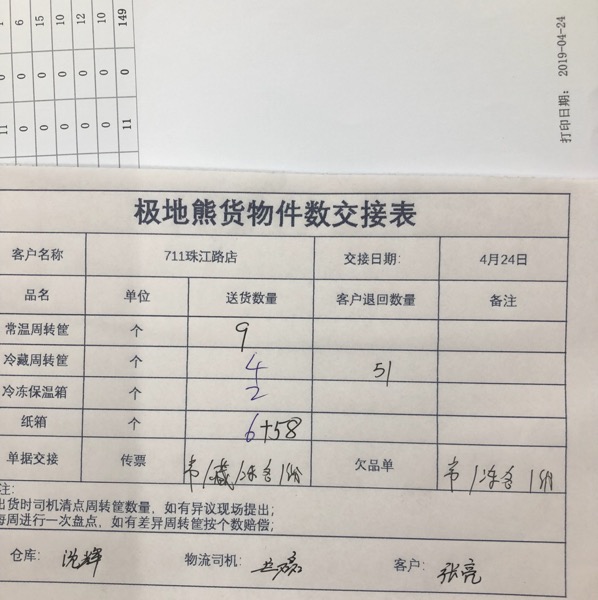 6 15 10 12 10 149
0 0 0 0 0 0
11 0 0 0 0 0 11
打印日期: 2019-04-24
极地熊货物件数交接表
客户名称 711珠江路店 交接日期: 4月24日
品名 单位 送货数量 客户退回数量 备注
常温周转筐 个 9
冷藏周转筐 个 4 51
冷冻保温箱 个 2
纸箱 个 6+58
单据交接 传票 常/藏/冻各1份 欠品单 常/冻各1份
注:
出货时司机清点周转筐数量，如有异议现场提出;
每周进行一次盘点，如有差异周转筐按个数赔偿;
仓库: 沈辉 物流司机: 客户: 张亮